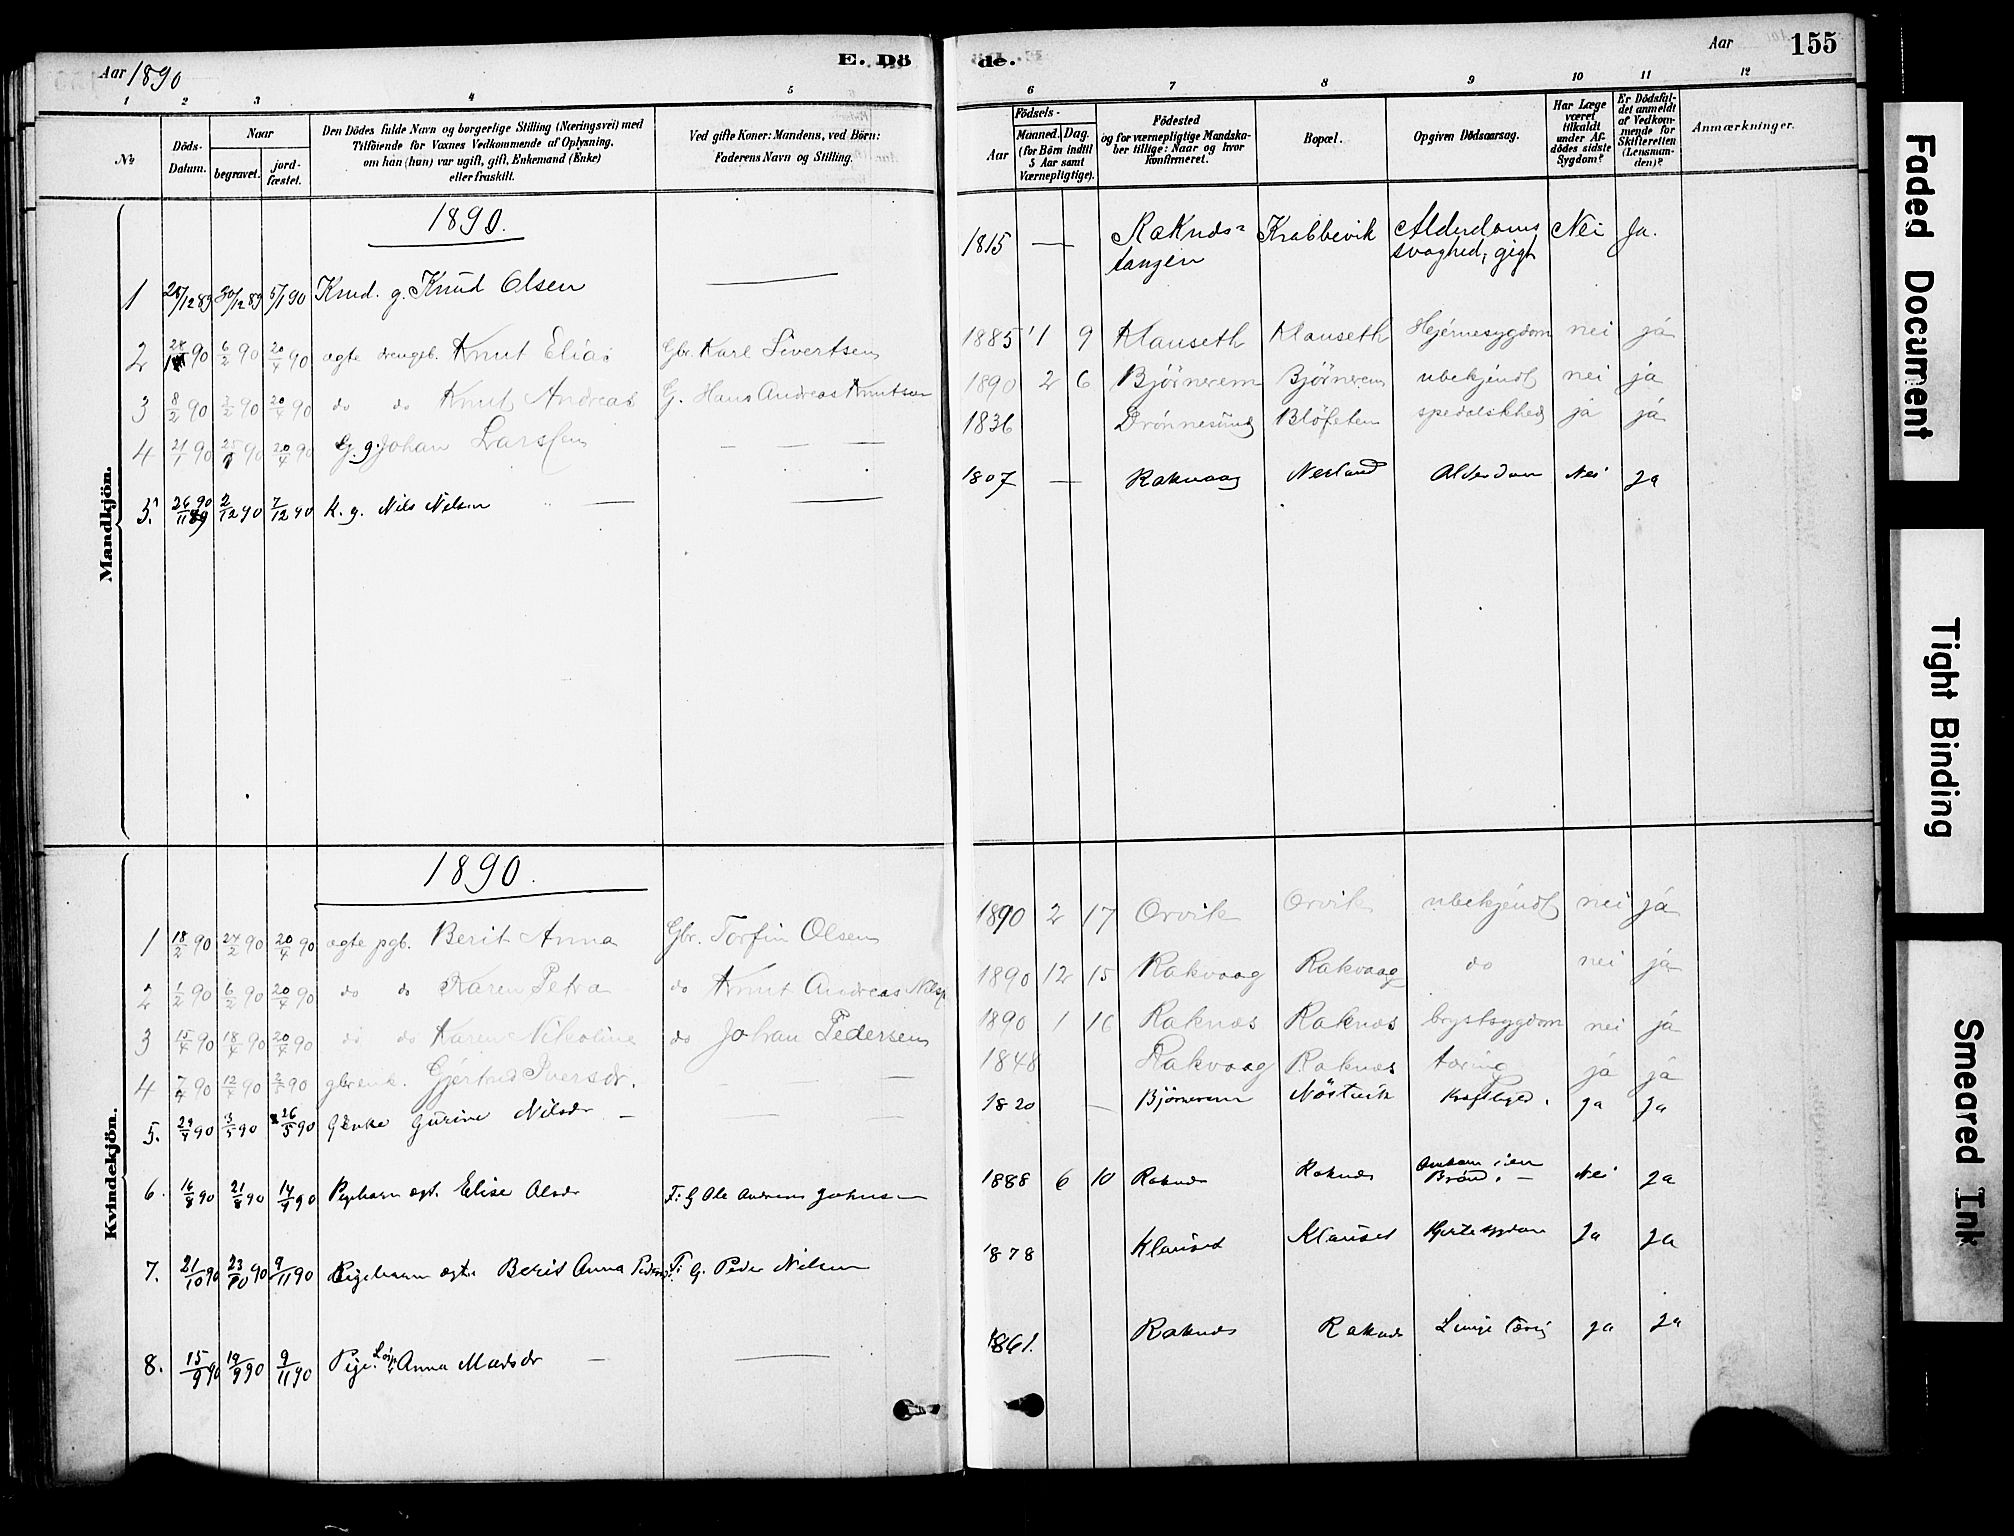 Aar 1890
E. Dö
de.
Aar
155
1 2 3 4 5
6 7 8 9 10 11 12
No
Döds-Datum.
Naar
begravet.
jord-fæstet.
Den Dödes fulde Navn og borgerlige Stilling (Næringsvei) med
Tilföiende for Voxnes Vedkommende af Oplysning,
om han (hun) var ugift, gift, Enkemand (Enke)
eller fraskilt.
Ved gifte Koner: Mandens, ved Börn:
Faderens Navn og Stilling.
Födsels-
Aar
Maaned. Dag.
(for Börn indtil
5 Aar samt
Værnepligtige).
Födested
og for værnepligtige Mandska-
ber tillige: Naar og hvor
konfirmeret.
Bopæl.
Opgiven Dödsaarsag.
Har Læge
været
tilkaldt
under Af-
dödes sidste
Sygdom?
Er Dödsfal-
det anmeldt
af Vedkom-
mende for
Skifteretten
(Lensman-
den)?
Anmærkninger.
Mandkjön.
1890.
1 28/12 89 30/12 89 5/1 90 Kmd. g. Knud Olsen — 1815 — Raknds= Krabbevik Alderdoms Nei Ja.
tangen svaghed, gigt
2 90 6/2 90 20/4 90 ægte drengeb. Knut Elias Gbr. Karl Sivertsen 1885 1 9 Klauseth Klauseth Hjernesygdom nei ja
3 8/2 90 90 20/4 90 do do Knut Andreas G. Hans Andreas Knutsen 1890 2 6 Bjørnerem Bjørnerem ubekjendt nei ja
4 21/1 90 25/1 90 20/4 90 G. g. Johan Larssen — — — 1836 Drønnesund Bløfeten spedalskhed ja ja
5. 26/11 90 2/12 90 7/12 90 K. g. Nils Nilsen — — 1807 — Rakvaag Nesland Alderdom Nei Ja
Kvindekjön.
1890.
1 18/2 90 24/2 90 20/4 90 ægte pgb. Berit Anna Gbr. Torfin Olsen 1890 2 17 Orvik Orvik ubekjendt nei ja
2 1/2 90 6/2 90 20/4 90 do do Karen Petra do Knut Andreas Nils 1890 12 15 Rakvaag Rakvaag do nei ja
3 15/4 90 18/4 90 20/4 90 do do Karen Nikoline do Johan Pedersen 1890 1 16 Raknes Raknes brystsygdom nei ja
4 7/4 90 12/4 90 2/5 90 gbrenk. Gjertrud Iversdr. — — 1848 Rakvaag Raknes tæring ja ja
5. 29/4 90 3/5 90 26/5 90 G enke Gurine Nilsdr — — — 1820 — Bjørnerem Nöstvik Kraftløshed. Ja Ja
6. 16/8 90 21/8 90 14/9 90 Pigebarn ægt. Elise Olsdr F: G Ole Andreas Johnsen 1888 6 10 Raknes Raknes Omkom i en Nei Ja
Brønd. —
7. 21/10 90 23/10 90 9/11 90 Pigebarn ægte Berit Anna Pedersd F: G. Peder Nilsen 1878 Klauset Klauset Hjertesygdom Ja Ja
8. 15/9 90 19/9 90 9/11 90 Pige. Anna Madsdr — — 1861. Raknes Raknes Lunge tæring Ja Ja
Faded Document
Tight Binding
Smeared Ink